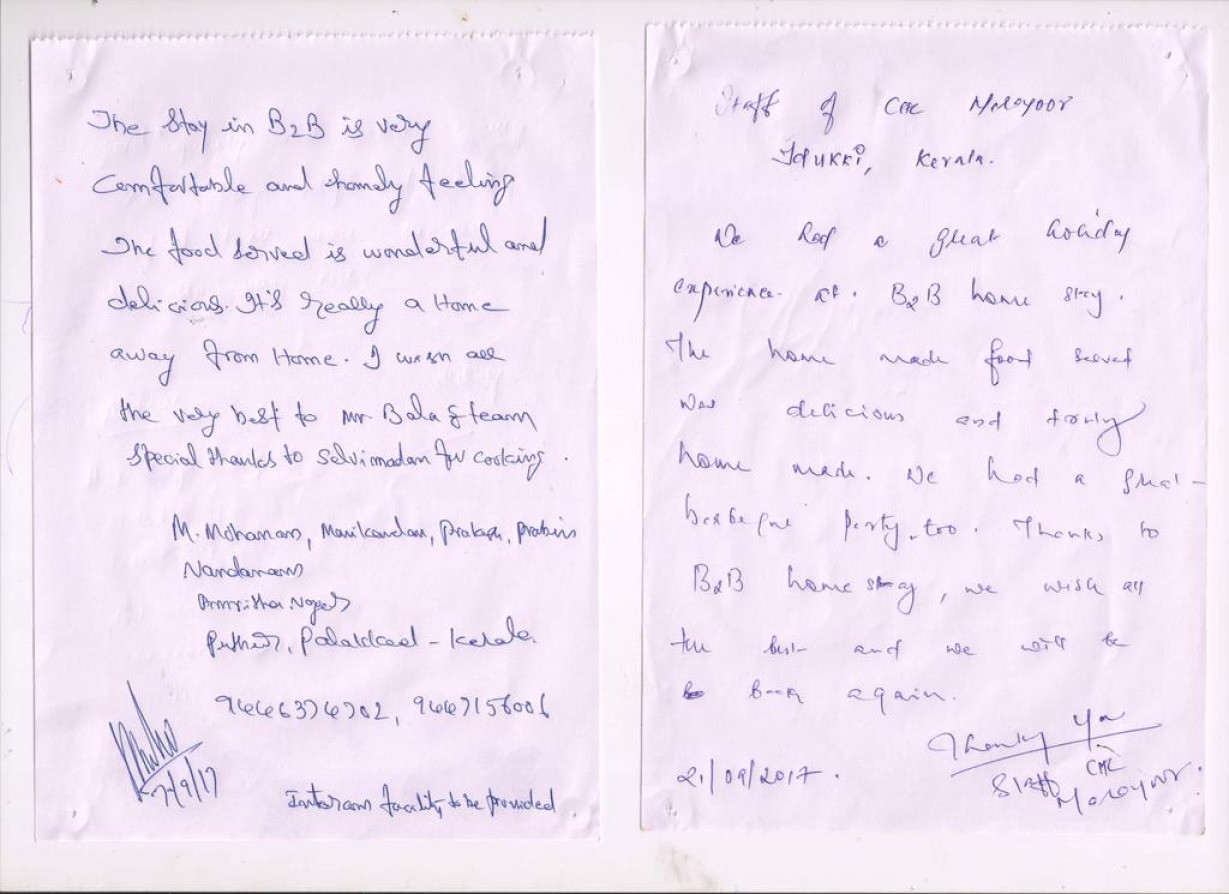 The Stay in B2B is very
Comfortable and homely feeling
The food served is wonderful and
delicious. It's really a Home
away from Home. I wish all
the very best to Mr. Bala & team
Special thanks to Selvi madam for cooking.
M. Mohanan, Manikandan, Prakash, Prabin
Nandanam
Nagar
Puthur, Palakkad - Kerala.
9446374702, 9447156006
7/9/17
Intercom facility to be provided
Staff of Marayoor
Idukki, Kerala.
We Had a great holiday
experience at. B2B home stay.
The home made food served
was delicious and truly
home made. We had a great
barbeque party, too. Thanks to
B2B home stay, we wish all
the best and we will be
back again.
Thank You
21/09/2017.
Staff
Marayoor.